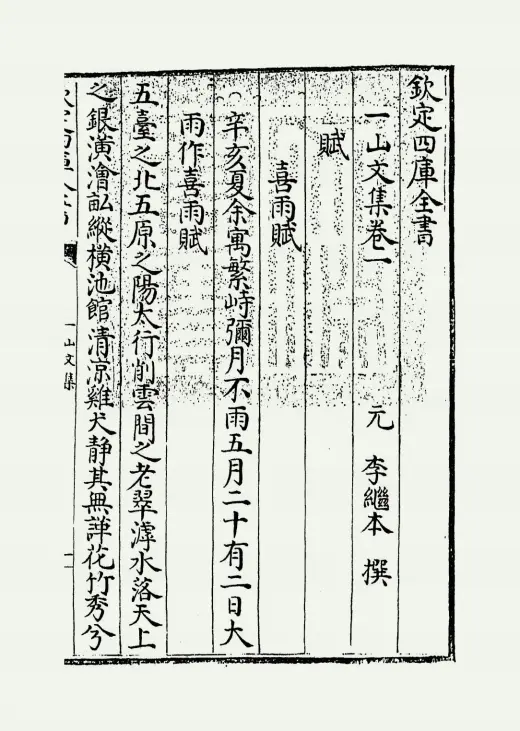 欽定四庫全書
一山文集卷一
元 李繼本 撰
賦
喜雨賦
辛亥夏余寓繁峙彌月不雨五月二十有二日大
雨作喜雨賦
五臺之北五原之陽太行削雲間之老翠滹水落天上
之銀潢澮畆縱橫池館清涼雞犬静其無譁花竹秀兮
一山文集